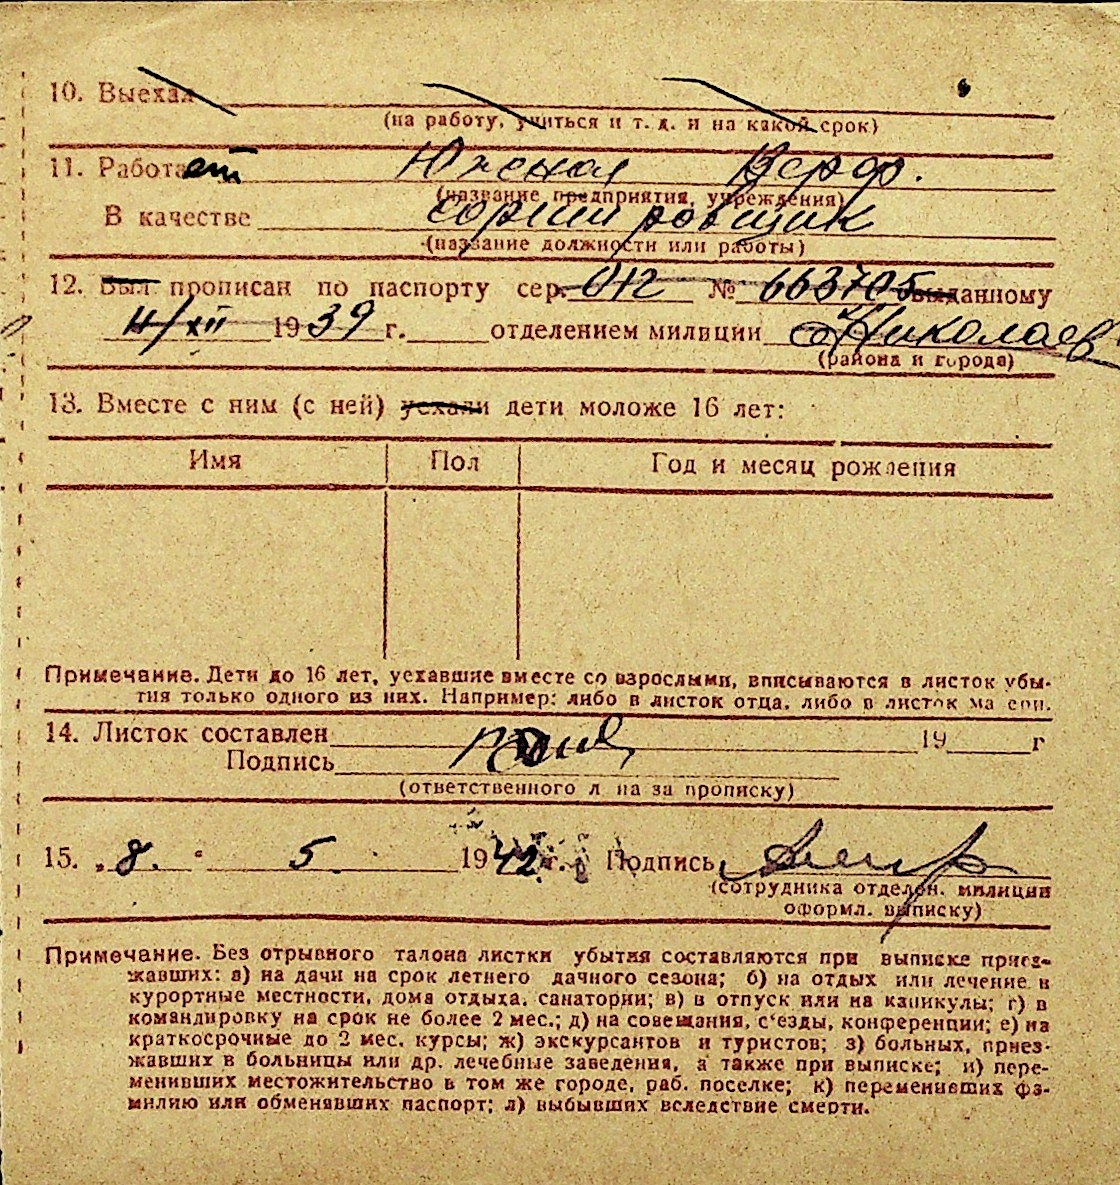 10. Выехал
(на работу, учиться и т. д. и на какой срок)
11. Работает Южная Верф.
(название предприятия, учреждения)
В качестве сортировщик
(название должности или работы)
12. Был прописан по паспорту сер. № 663705 выданному
4/XII 1939 г. отделением милиции Николаев
(района и города)
13. Вместе с ним (с ней) уехали дети моложе 16 лет:
Имя Пол Год и месяц рождения
Примечание. Дети до 16 лет, уехавшие вместе со взрослыми, вписываются в листок убы-
тия только одного из них. Например: либо в листок отца, либо в листок матери.
14. Листок составлен 19 г
Подпись
(ответственного лица за прописку)
15. „8.“ 5. 1942 г. Подпись
(сотрудника отделен. милиции
оформл. выписку)
Примечание. Без отрывного талона листки убытия составляются при выписке приез-
жавших: а) на дачи на срок летнего дачного сезона; б) на отдых или лечение в
курортные местности, дома отдыха, санатории; в) в отпуск или на каникулы; г) в
командировку на срок не более 2 мес.; д) на совещания, с‘езды, конференции; е) на
краткосрочные до 2 мес. курсы; ж) экскурсантов и туристов; з) больных, приез-
жавших в больницы или др. лечебные заведения, а также при выписке; и) пере-
менивших местожительство в том же городе, раб. поселке; к) переменивших фа-
милию или обменявших паспорт; л) выбывших вследствие смерти.